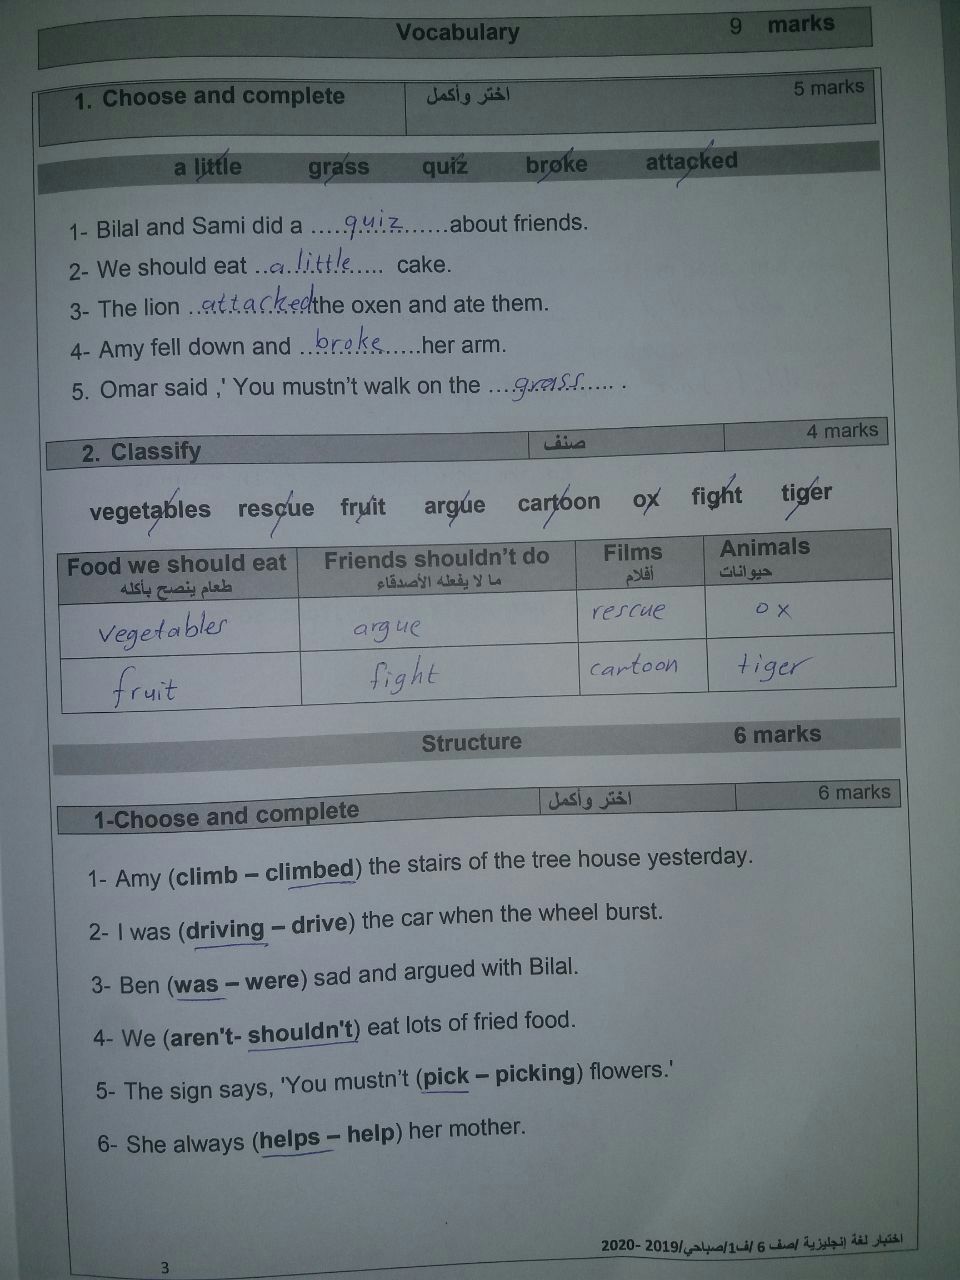 Vocabulary 9 marks
1. Choose and complete اختر وأكمل 5 marks
a little grass quiz broke attacked
1- Bilal and Sami did a .....quiz.......about friends.
2- We should eat ..a little..... cake.
3- The lion ..attacked the oxen and ate them.
4- Amy fell down and ..broke......her arm.
5. Omar said ,' You mustn't walk on the ....grass...... .
2. Classify صنف 4 marks
vegetables rescue fruit argue cartoon ox fight tiger
Food we should eat Friends shouldn't do Films Animals
طعام ينصح بأكله ما لا يفعله الأصدقاء أفلام حيوانات
vegetables argue rescue ox
fruit fight cartoon tiger
Structure 6 marks
1-Choose and complete اختر وأكمل 6 marks
1- Amy (climb – climbed) the stairs of the tree house yesterday.
2- I was (driving – drive) the car when the wheel burst.
3- Ben (was – were) sad and argued with Bilal.
4- We (aren't- shouldn't) eat lots of fried food.
5- The sign says, 'You mustn't (pick – picking) flowers.'
6- She always (helps – help) her mother.
اختبار لغة إنجليزية /صف 6 /ف1/صباحي/2019- 2020
3